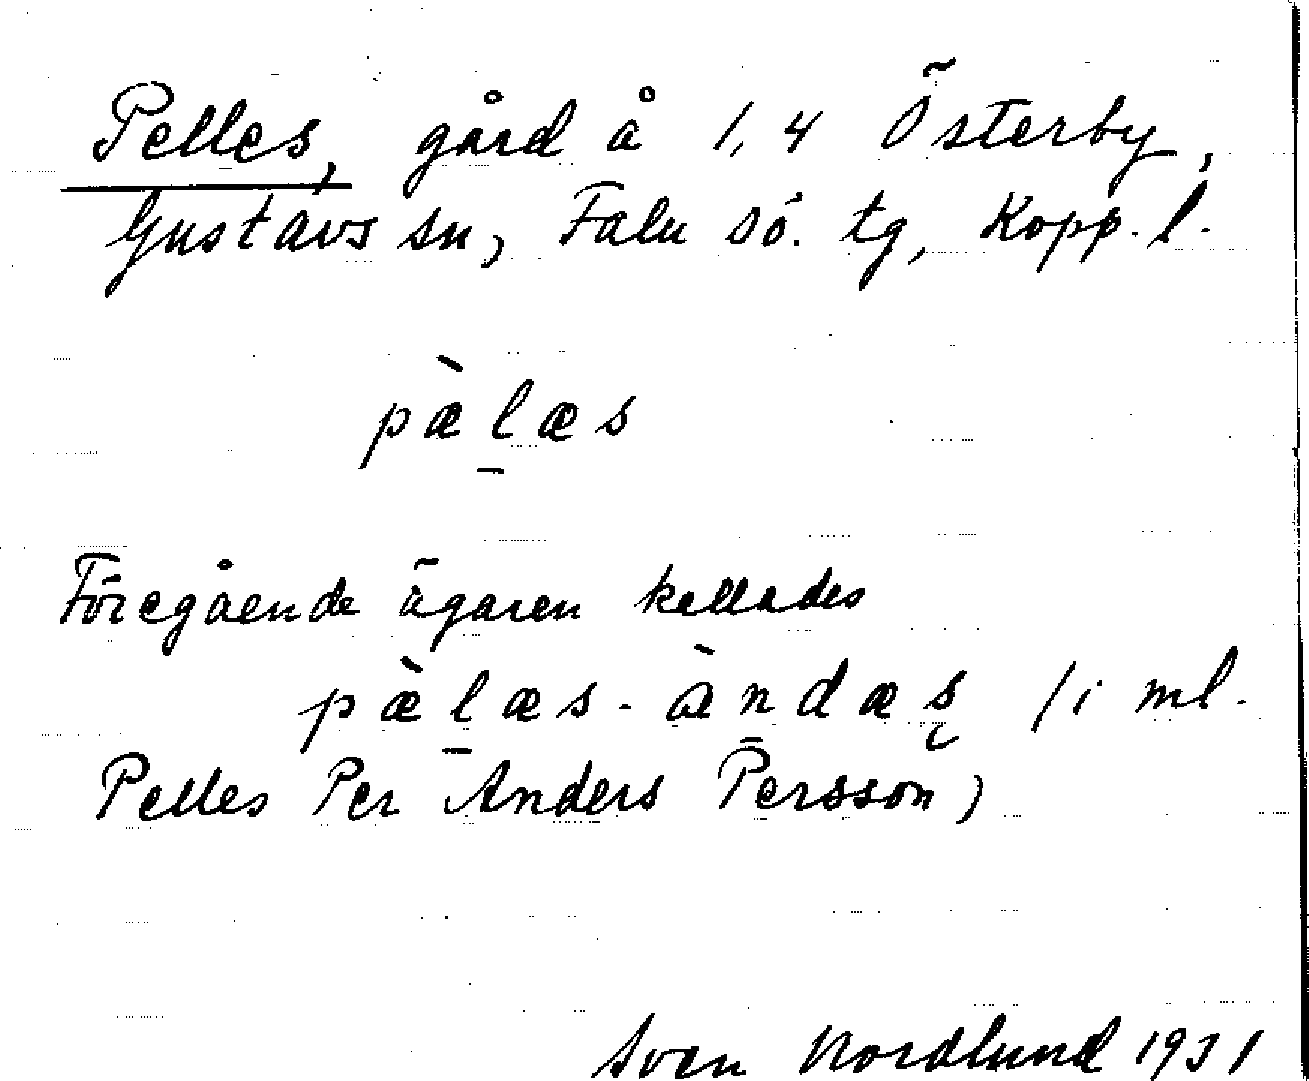 Pelles, gård å 1,4 Österby,
Gustavs sn, Falu sö. tg, Kopp. l.
pæ̀l̠æs
Föregående ägaren kallades
pæ̀l̠æs-àn̠dæs̨ (i ml.
Pelles Per Anders Persson)
Sven Nordlund 1931